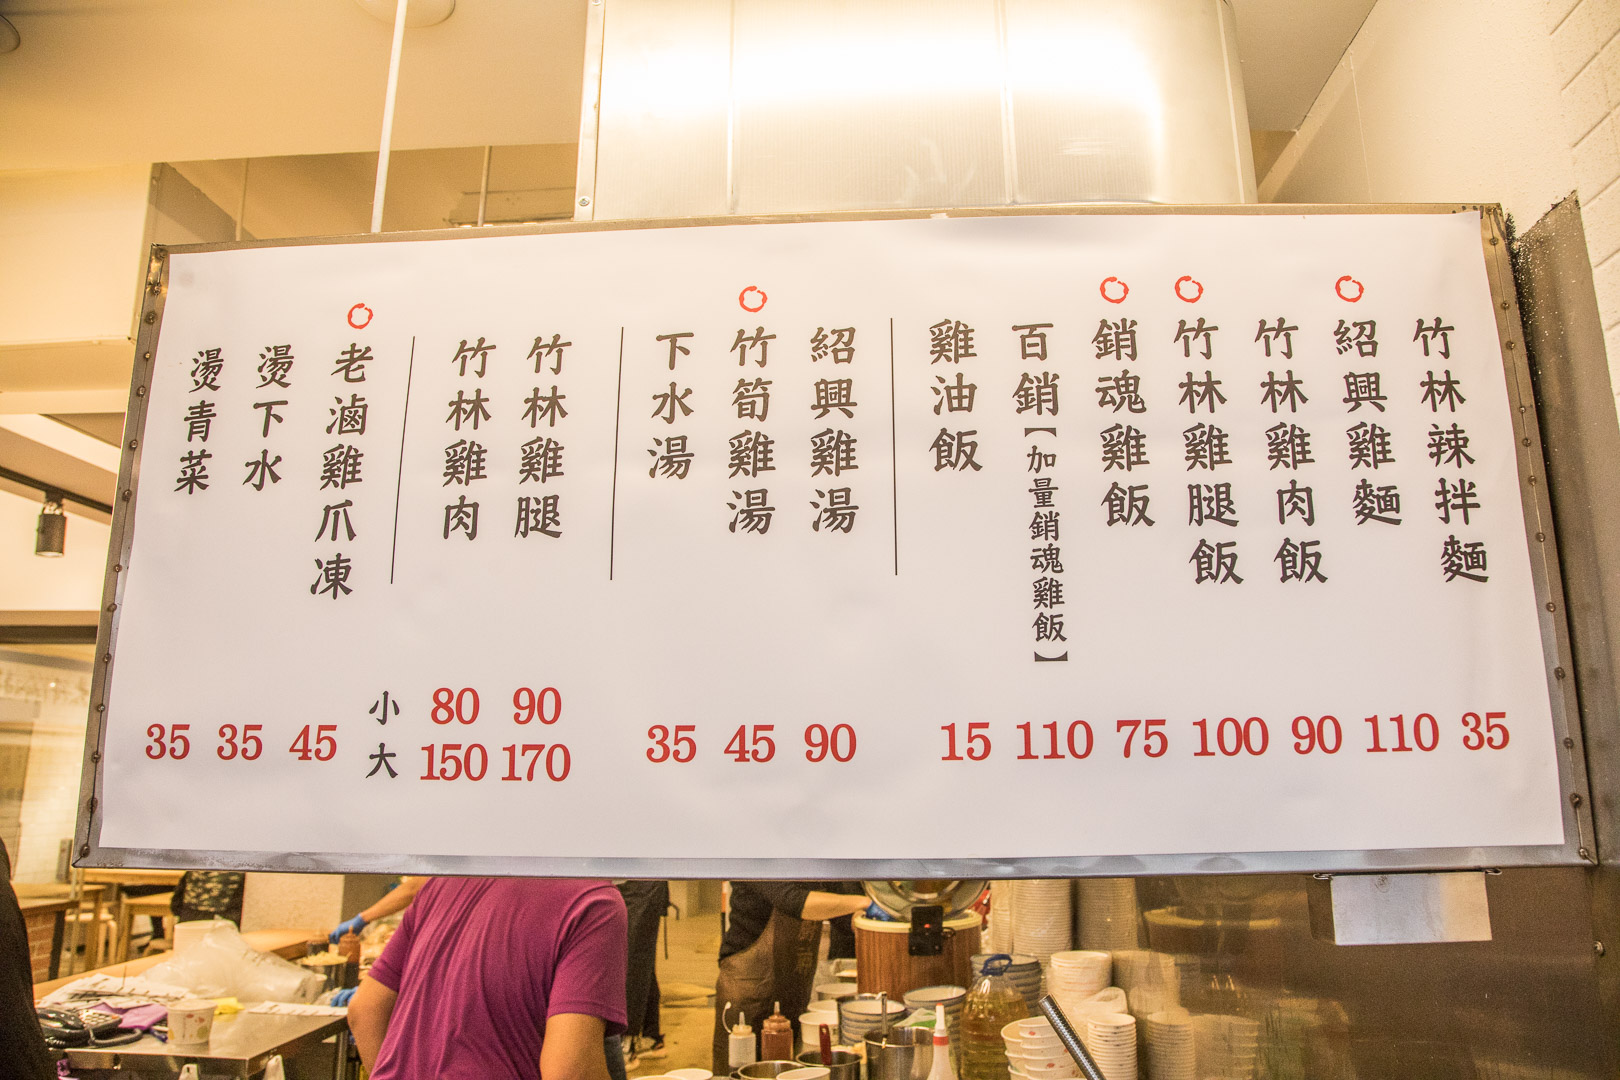 竹林辣拌麵 35
紹興雞麵 110
竹林雞肉飯 90
竹林雞腿飯 100
銷魂雞飯 75
百銷【加量銷魂雞飯】 110
雞油飯 15
紹興雞湯 90
竹筍雞湯 45
下水湯 35
竹林雞腿 小 90 大 170
竹林雞肉 小 80 大 150
老滷雞爪凍 45
燙下水 35
燙青菜 35